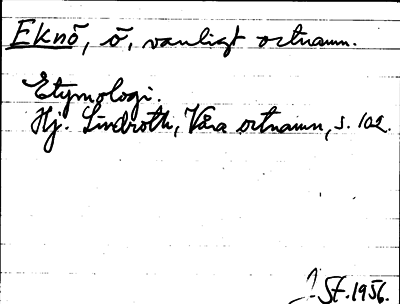 Eknö, ö, vanligt ortnamn.
Etymologi.
Hj. Lindroth, Våra ortnamn, s. 102.
J. St. 1956.